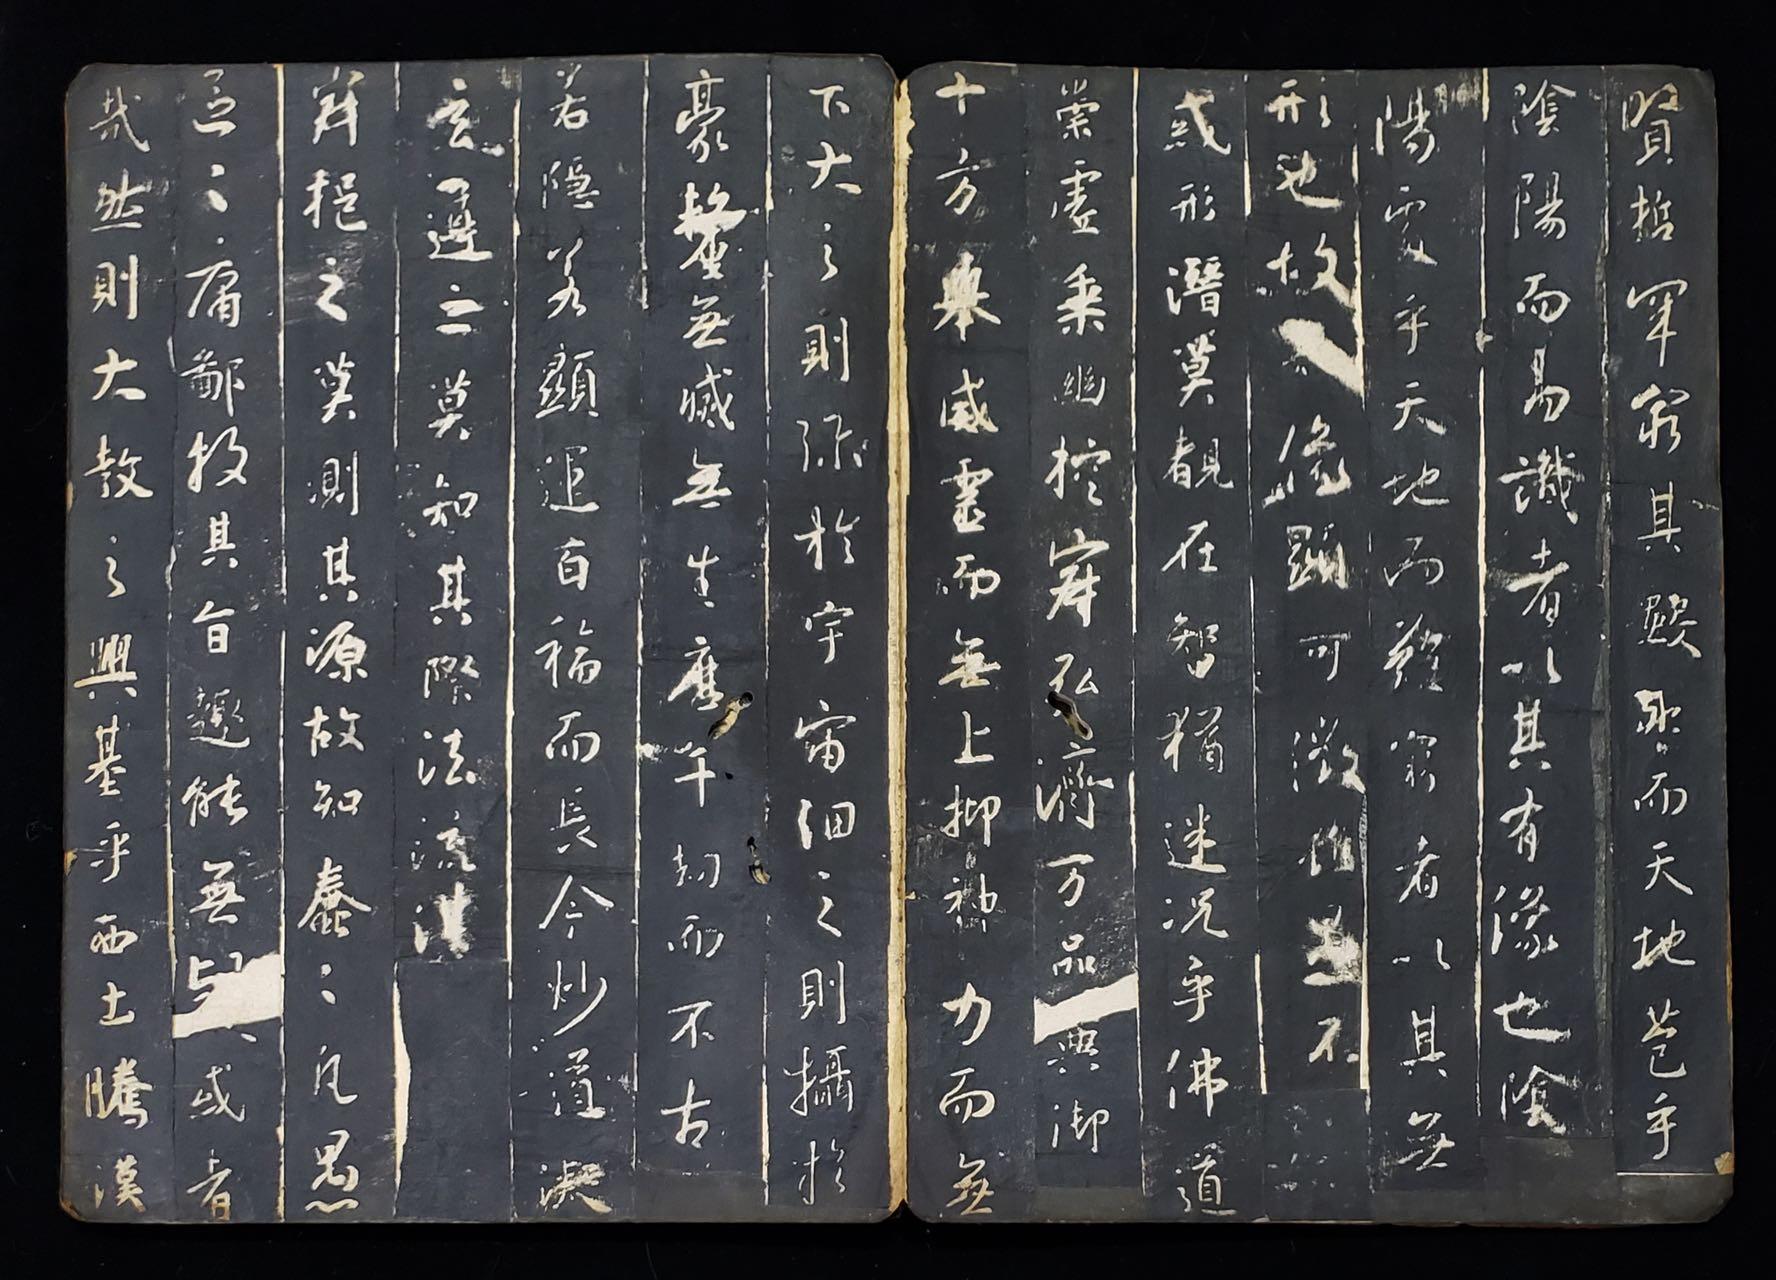 賢哲罕窮其數然而天地苞乎
陰陽而易識者以其有像也陰
陽處乎天地而難窮者以其無
形也故像顯可徵雖愚不
惑形潛莫覩在智猶迷況乎佛道
崇虛乘幽控寂弘濟万品典御
十方舉威靈而無上抑神力而無
下大之則弥於宇宙細之則攝於
豪釐無滅無生歷千劫而不古
若隱若顯運百福而長今妙道凝
玄遵之莫知其際法流湛
寂挹之莫測其源故知蠢々凡愚
區々庸鄙投其旨趣能無或者
哉然則大教之興基乎西土騰漢